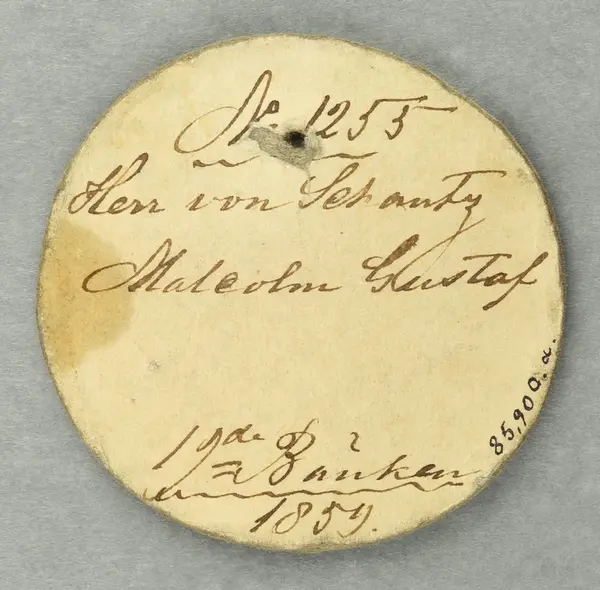 No. 1255
Herr von Schantz
Malcolm Gustaf
19de Bänken
1859.
85,900. a.